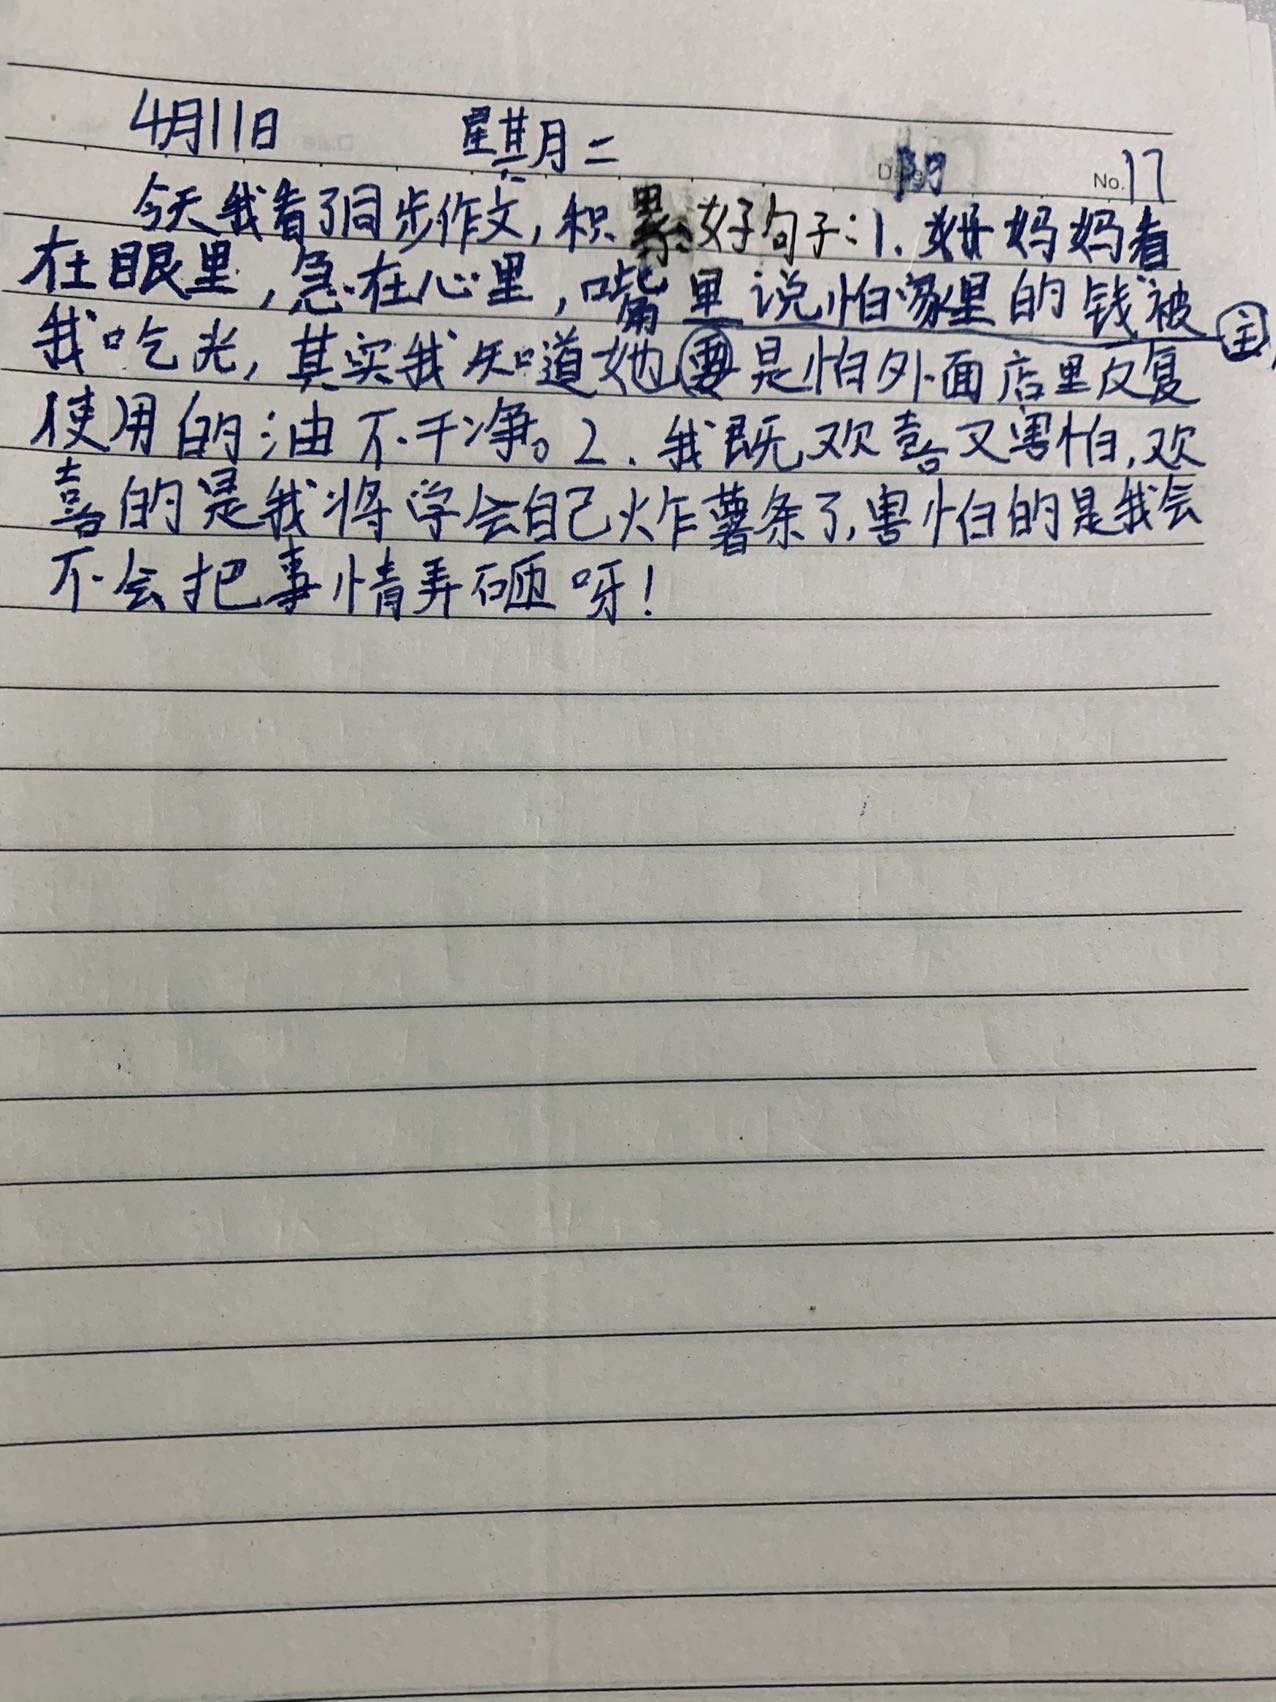 4月11日 星期二 阴 No.17
今天我看了同步作文，积累好句子：1.妈妈看
在眼里，急在心里，嘴里说怕家里的钱被 主
我吃光，其实我知道她要是怕外面店里反复
使用的油不干净。2.我既欢喜又害怕，欢
喜的是我将学会自己炸薯条了，害怕的是我会
不会把事情弄砸呀！